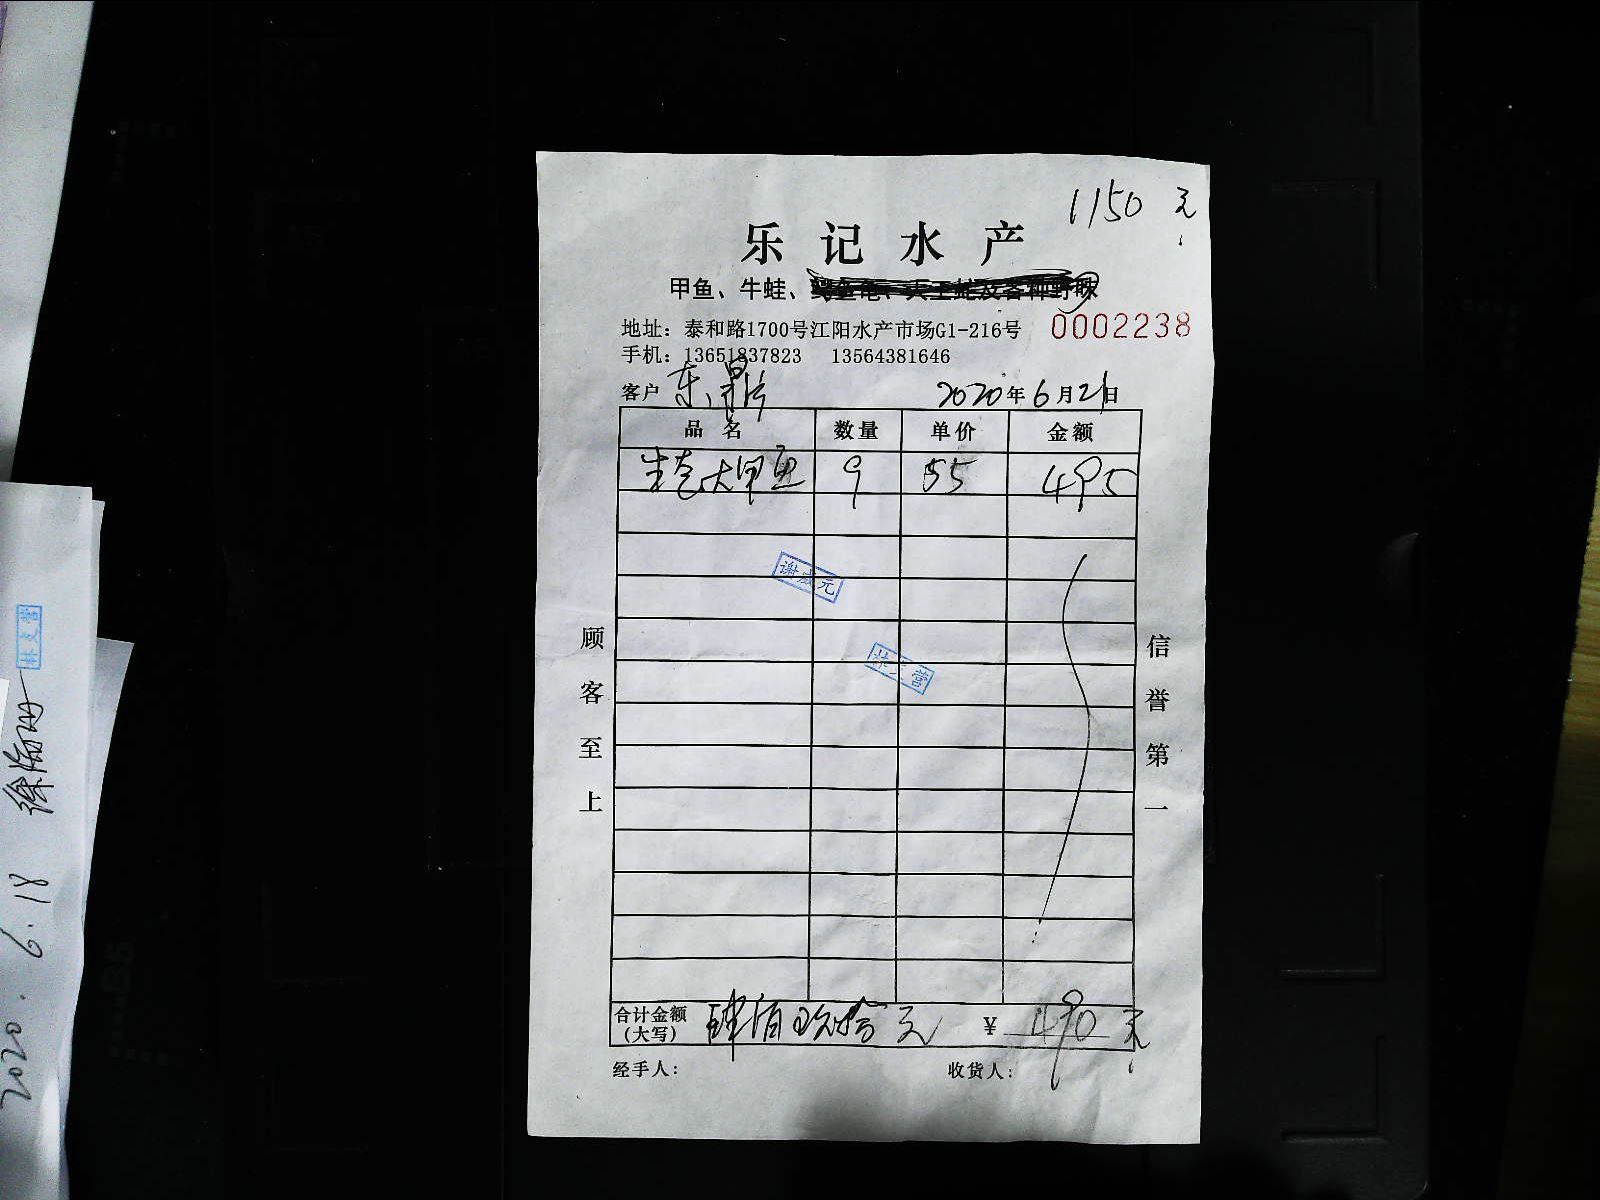 1150元
乐记水产
甲鱼、牛蛙、
地址：泰和路1700号江阳水产市场G1-216号
0002238
手机：13651837823 13564381646
客户 东
2020年6月21日
品名 数量 单价 金额
生宰大甲鱼 9 55 495
谢 元
林 营
顾客至上
信誉第一
合计金额(大写) 肆佰玖拾元 ¥ 490元
经手人：
收货人：
2020.6.18